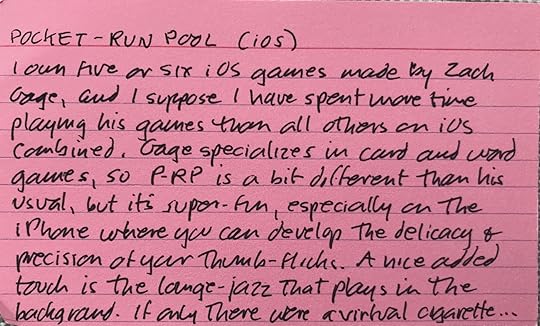 POCKET-RUN POOL (iOS)
I own five or six iOS games made by Zach
Gage, and I suppose I have spent more time
playing his games than all others on iOS
combined. Gage specializes in card and word
games, so P-RP is a bit different than his
usual, but it's super-fun, especially on the
iPhone where you can develop the delicacy &
precision of your thumb-flicks. A nice added
touch is the lounge-jazz that plays in the
background. If only there were a virtual cigarette...